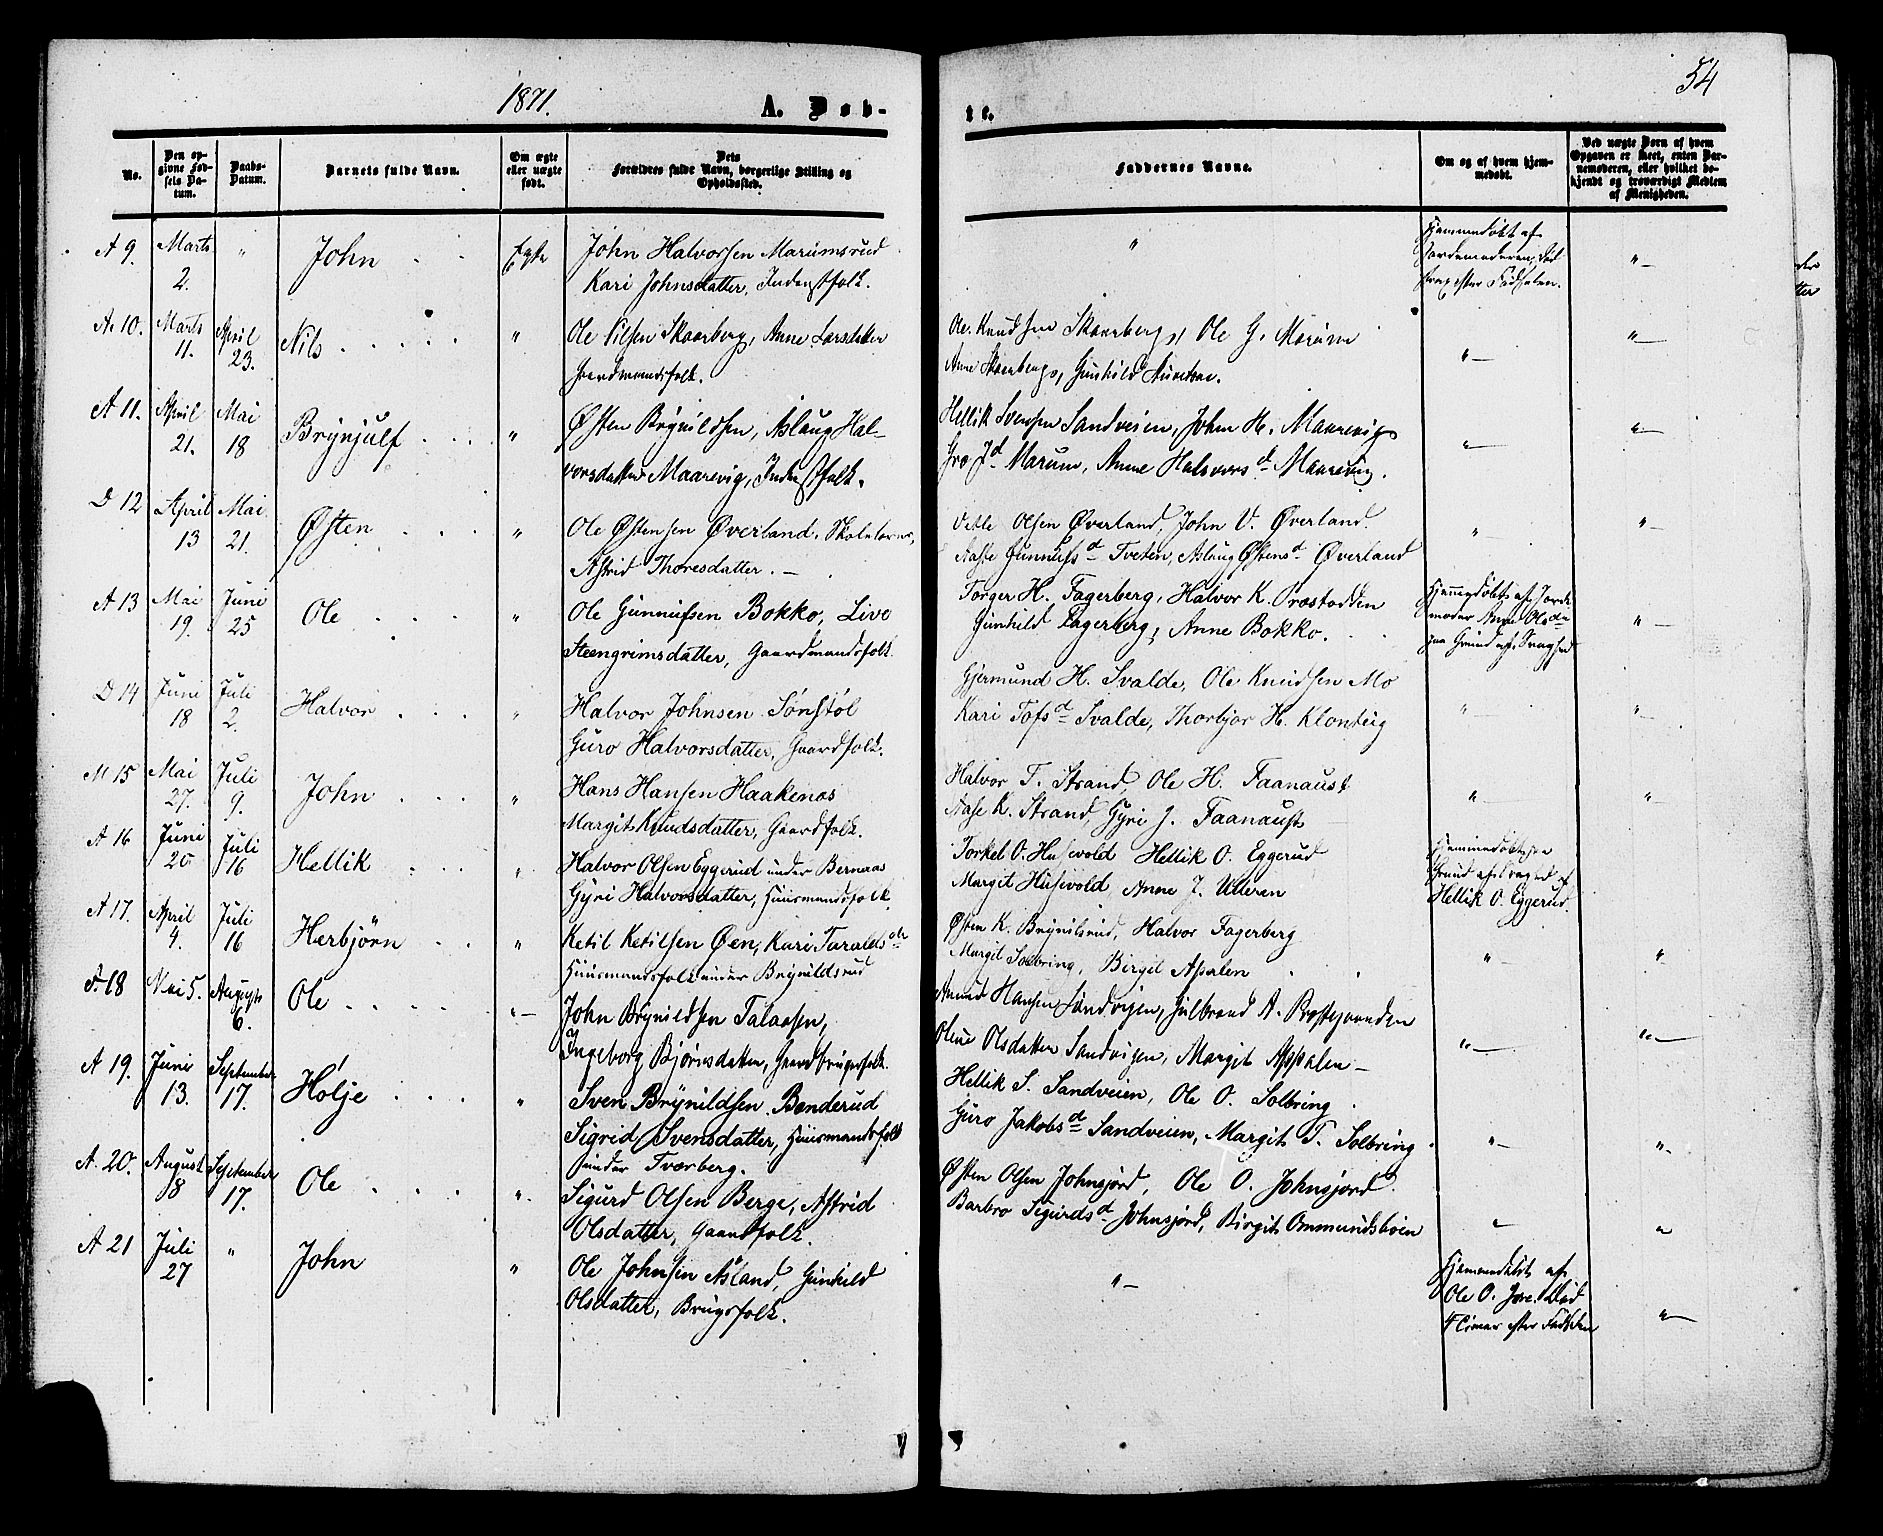 1871.
A. Døb-
te.
54
No.
Den op-
givne Fød-
sels Da-
tum.
Daabs-
Datum.
Barnets fulde Navn.
Om ægte
eller uægte
født.
Dets
Forældres fulde Navn, borgerlige Stilling og
Opholdssted.
Faddernes Navne.
Om og af hvem hjem-
medøbt.
Ved uægte Børn af hvem
Opgaven er skeet, enten Bar-
nemoderen, eller hvilket be-
kjendt og troværdigt Medlem
af Menigheden.
A 9. Marts 2. " John Ægte
John Halvorsen Marumsrud
Kari Johnsdatter, Inderstfolk.
"
Hjemmedøbt af
Jordemoderen, død
strax efter Fødselen.
" —
A. 10. Marts 11. April 23. Nils "
Ole Nilsen Skaarberg, Anne Larsdatter
Gaardmandsfolk.
Ole Knudsen Skaarberg, Ole G. Marum
Anne Skaarberg,
" — " —
A 11. April 21. Mai 18 Brynjulf "
Østen Brynildsen, Aslaug Hal-
vorsdatter Maarevig, Inderstfolk.
Hellik Svensen Sandveien, John H. Maarevig
Gro Jd Marum, Anne Halvorsd Maarevig.
" — " —
D 12 April 13 Mai 21. Østen "
Ole Østensen Øverland, Skolelærer,
Astrid Thoresdatter. —
Vetle Olsen Øverland, John V. Øverland.
Aaste Gunnufsd Tveten, Aslaug Østensd Øverland
" — " —
A 13 Mai 19. Juni 25 Ole "
Ole Gunnufsen Bokko, Live
Steengrimsdatter, Gaardmandsfolk.
Torger H. Fagerberg, Halvor K. Præstodden
Gunhild Fagerberg, Anne Bokko.
Hjemmedøbt af Jorde-
moder Anne Olsdtr
paa Grund af Svaghed
" —
D 14 Juni 18 Juli 2. Halvor "
Halvor Johnsen Sønstøl
Guro Halvorsdatter, Gaardfolk.
Gjermund H. Svalde, Ole Knudsen Mo
Kari Tofsd Svalde, Thorbjør H. Klonteig
" — " —
M 15 Mai 27. Juli 9. John "
Hans Hansen Haakenæs
Margit Knudsdatter, Gaardfolk.
Halvor T. Strand, Ole H. Faanaust
Aase K. Strand, Gyri J. Faanaust
" — " —
A 16 Juni 20 Juli 16 Hellik "
Halvor Olsen Eggerud under Bernaas
Gyri Halvorsdatter, Huusmandsfolk.
Torkel O. Husevold Hellik O. Eggerud
Margit Husevold, Anne J. Ulleran
Hjemmedøbt paa
Grund af Svaghed af
Hellik O. Eggerud.
A 17. April 4. Juli 16 Herbjörn "
Ketil Ketilsen Øen, Kari Taraldsdtr
Huusmandsfolk under Brynildsrud
Østen K. Brynilsrud, Halvor Fagerberg
Margit Solbring, Birgit Aspalen
" — "
F. 18 Mai 5. August 6. Ole " —
John Brynildsen Talaasen,
Ingeborg Bjørnsdatter, Gaardbrugerfolk.
Amund Hansen Sandvigen, Gulbrand A.
Oline Olsdatter Sandvigen, Margit Aspalen —
" — " —
A 19. Juni 13. September 17. Hølje "
Sven Brynildsen Bønderud
Sigrid Svensdatter, Huusmandsfolk
under Tværberg.
Hellik S. Sandveien, Ole O. Solbring
Guro Jakobsd Sandveien, Margit T. Solbring.
" — " —
A. 20. August 8 September 17. Ole "
Sigurd Olsen Berge, Astrid
Olsdatter, Gaardfolk.
Østen Olsen Johnsjord, Ole O. Johnsjord
Barbro Sigurdsd Johnsjord, Birgit Ommundsbøen
" — " —
A 21 Juli 27 " John "
Ole Johnsen Åsland, Gunhild
Olsdatter, Brugsfolk.
" —
Hjemmedøbt af
Ole O. Død
4 Timer efter Fødselen
" —